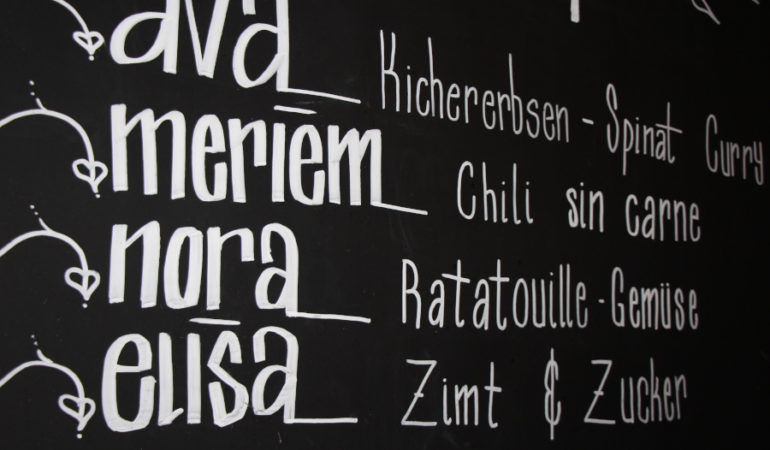 ava Kichererbsen - Spinat Curry
meriem Chili sin carne
nora Ratatouille - Gemüse
elisa Zimt & Zucker